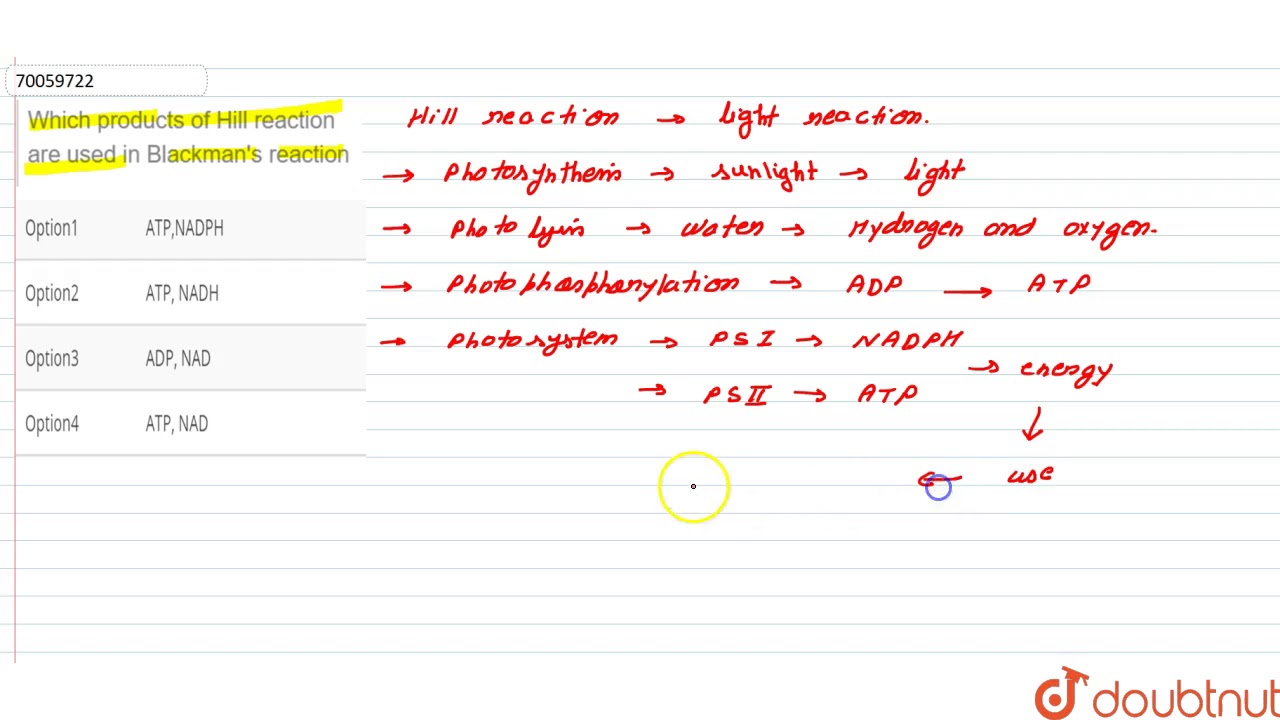 70059722
Which products of Hill reaction
are used in Blackman's reaction
Option1 ATP,NADPH
Option2 ATP, NADH
Option3 ADP, NAD
Option4 ATP, NAD
Hill reaction → light reaction.
→ Photosynthesis → sunlight → light
→ Photolysis → water → Hydrogen and oxygen.
→ Photophosphorylation → ADP → ATP
→ Photosystem → PSI → NADPH
→ energy
→ PSII → ATP
↓
← use
doubtnut